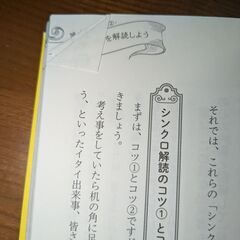 を解読しよう
それでは、これらの「シンク
シンクロ解読のコツ①とコ
まずは、コツ①とコツ②です
きましょう。
考え事をしていたら机の角に足
う、といったイタイ出来事、皆さ